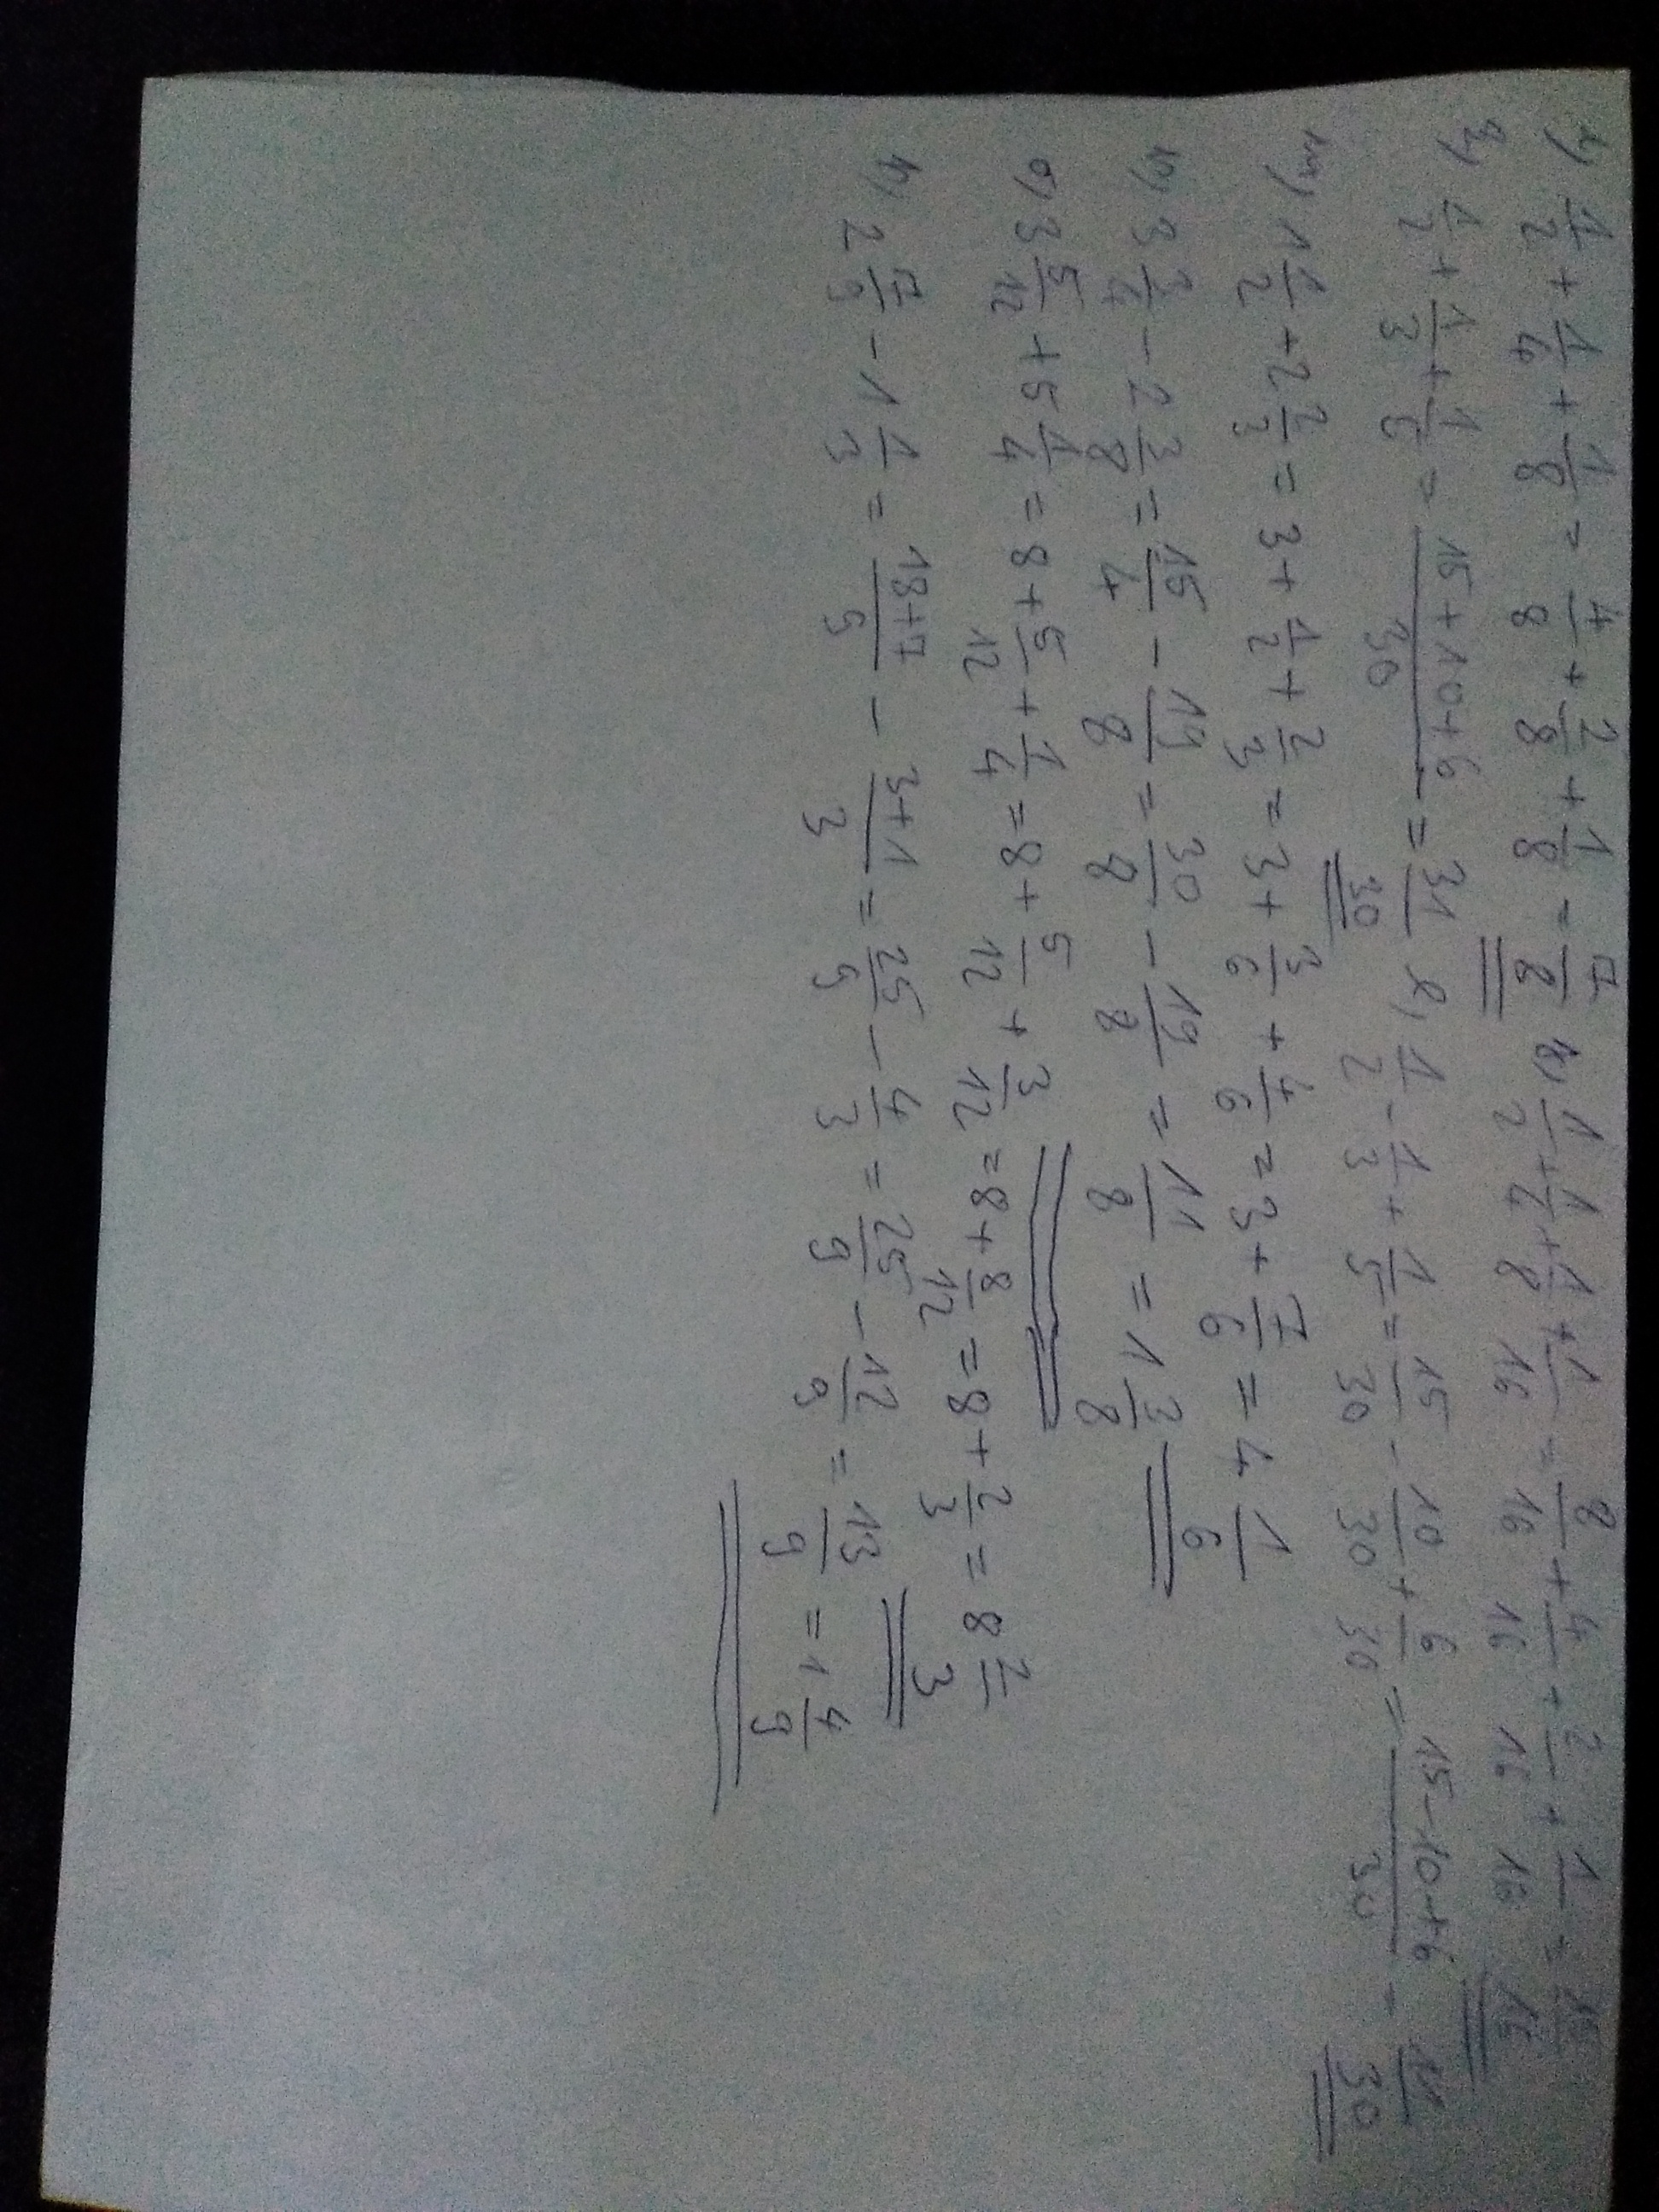 i) 1/2 + 1/4 + 1/8 = 4/8 + 2/8 + 1/8 = 7/8 k) 1/2 + 1/4 + 1/8 + 1/16 = 8/16 + 4/16 + 2/16 + 1/16 = 15/16
1/2 + 1/3 + 1/5 = (15+10+6)/30 = 31/30 l) 1/2 - 1/3 + 1/5 = 15/30 - 10/30 + 6/30 = (15-10+6)/30 = 11/30
m) 1 1/2 + 2 2/3 = 3 + 1/2 + 2/3 = 3 + 3/6 + 4/6 = 3 + 7/6 = 4 1/6
n) 3 3/4 - 2 3/8 = 15/4 - 19/8 = 30/8 - 19/8 = 11/8 = 1 3/8
o) 3 5/12 + 5 1/4 = 8 + 5/12 + 1/4 = 8 + 5/12 + 3/12 = 8 + 8/12 = 8 + 2/3 = 8 2/3
p) 2 7/9 - 1 1/3 = (18+7)/9 - (3+1)/3 = 25/9 - 4/3 = 25/9 - 12/9 = 13/9 = 1 4/9